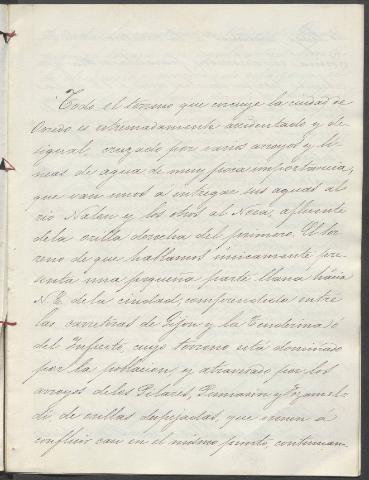 Todo el terreno que circuye la ciudad de
Oviedo es estremadamente accidentado y de-
sigual, cruzado por varios arroyos y lí-
neas de agua de muy poca importancia,
que van unos a entregar sus aguas al
rio Nalon y los otros al Nora, afluente
de la orilla derecha del primero. El ter-
reno de que hablamos únicamente pre-
senta una pequeña parte llana hácia
N.E. de la ciudad, comprendida entre
las carreteras de Gijon y la Tenderina ó
del Infiesto, cuyo terreno está dominado
por la poblacion, y atravesado por los
arroyos de los Pilares, y
de orillas despejadas, que vienen á
confluir casi en el mismo punto, continuan-